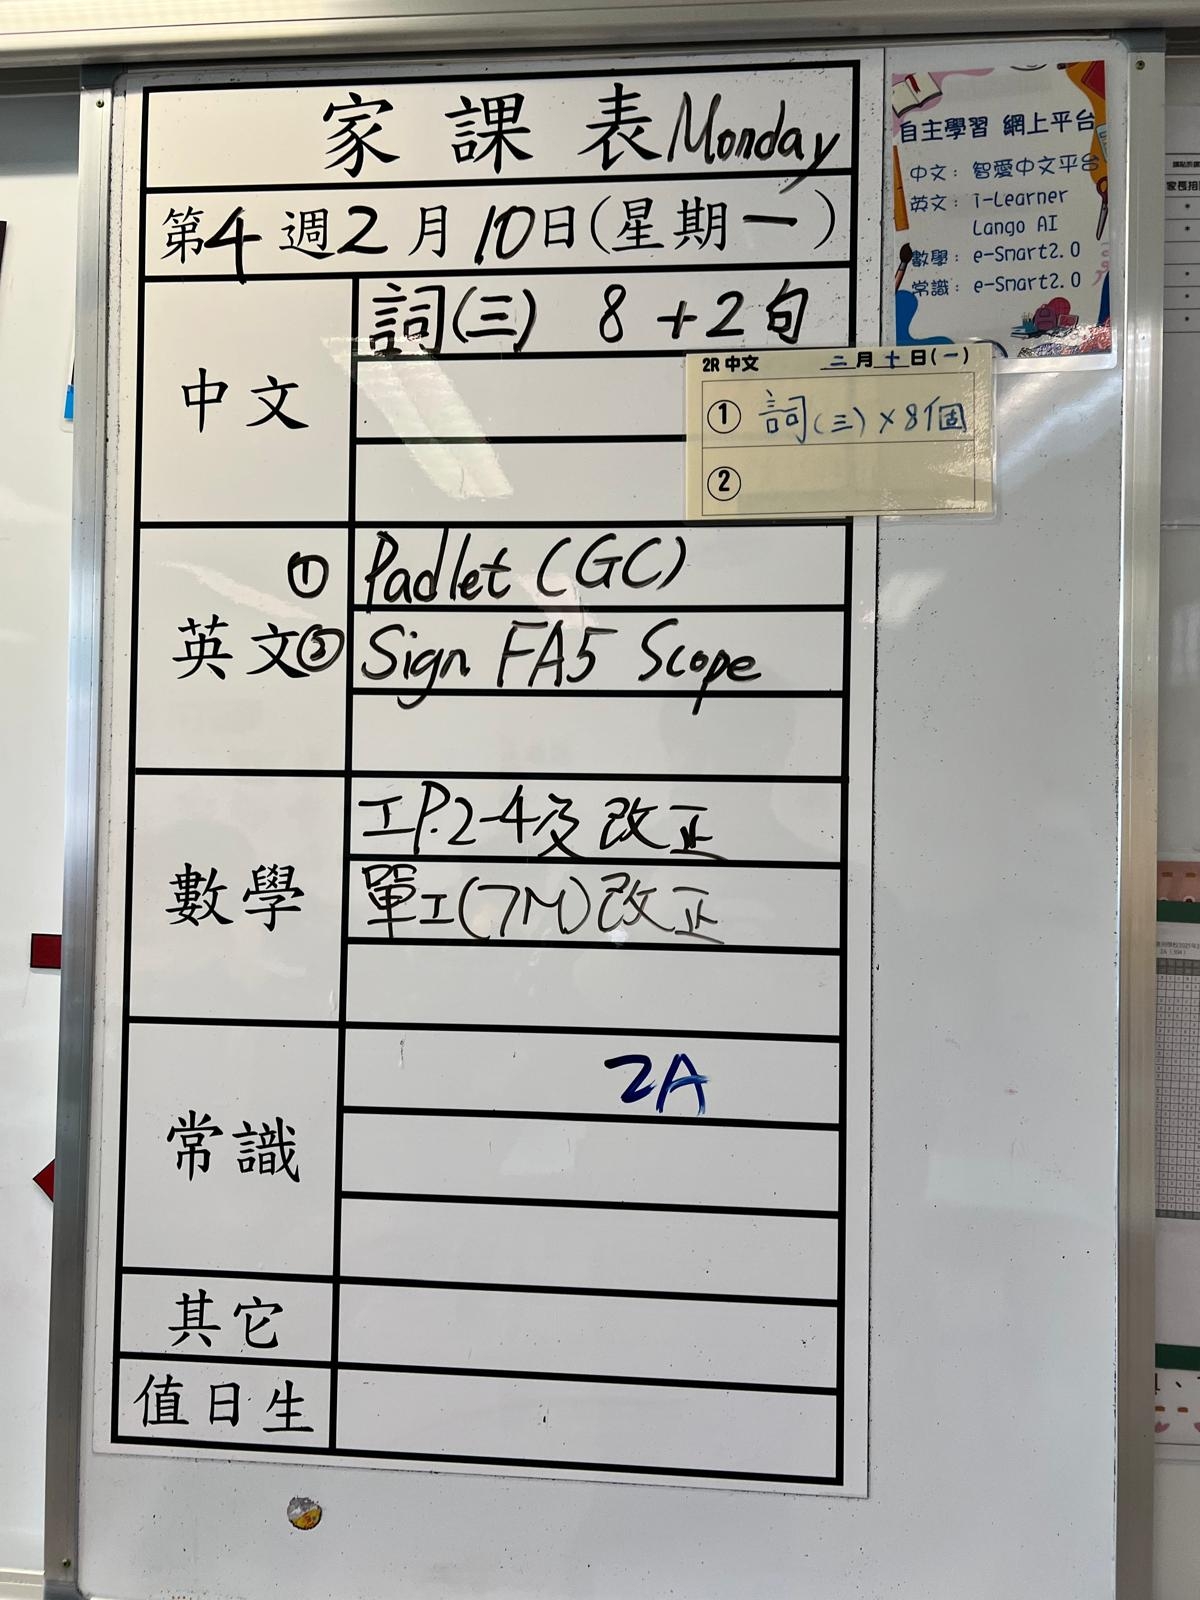 家課表 Monday
第4週2月10日(星期一)
中文
詞(三) 8+2句
2R 中文 二月十日(一)
① 詞(三)×8個
②
英文
① Padlet (GC)
② Sign FA5 Scope
數學
工P.2-4及改正
單工(7M)改正
常識
2A
其它
值日生
自主學習 網上平台
中文: 智愛中文平台
英文: i-Learner
Lango AI
數學: e-Smart2.0
常識: e-Smart2.0